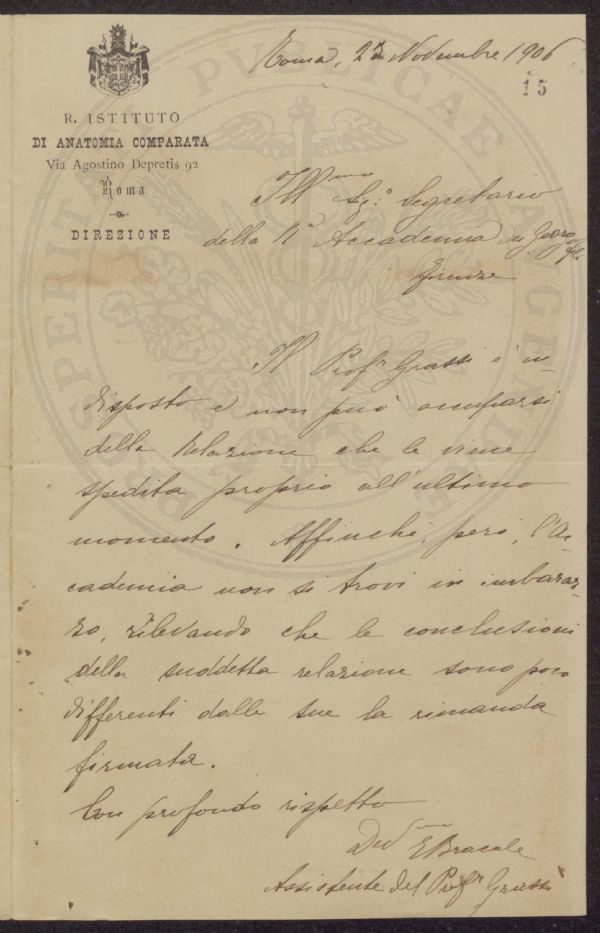 Roma, 22 Novembre 1906
15
R. ISTITUTO
DI ANATOMIA COMPARATA
Via Agostino Depretis 92
Roma
DIREZIONE
Ill.mo Sg.r Segretario
della R.a Accademia dei Georgofili
Firenze
Il Prof.r Grassi è in-
disposto e non può occuparsi
della Relazione che le viene
spedita proprio all'ultimo
momento. Affinchè, però, l'Ac-
cademia non si trovi in imbaraz-
zo, rilevando che le conclusioni
della suddetta relazione sono poco
differenti dalle sue la rimanda
firmata.
Con profondo rispetto
Dev.mo E Bracale
Assistente del Prof.r Grassi
PROSPERITATI PUBLICAE AUGENDAE